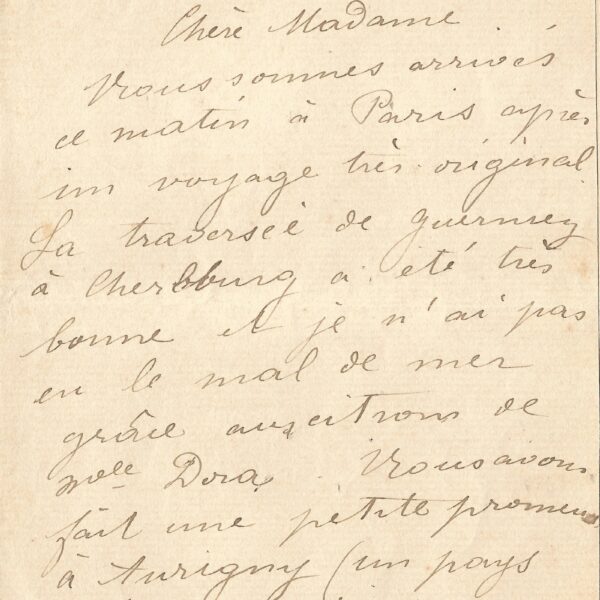 Chère Madame
Nous sommes arrivés
ce matin à Paris après
un voyage très original
La traversée de Guernesey
à Cherbourg a été très
bonne et je n'ai pas
eu le mal de mer
grâce aux citrons de
Melle Dora. Nous avons
fait une petite promenade
à Aurigny (un pays